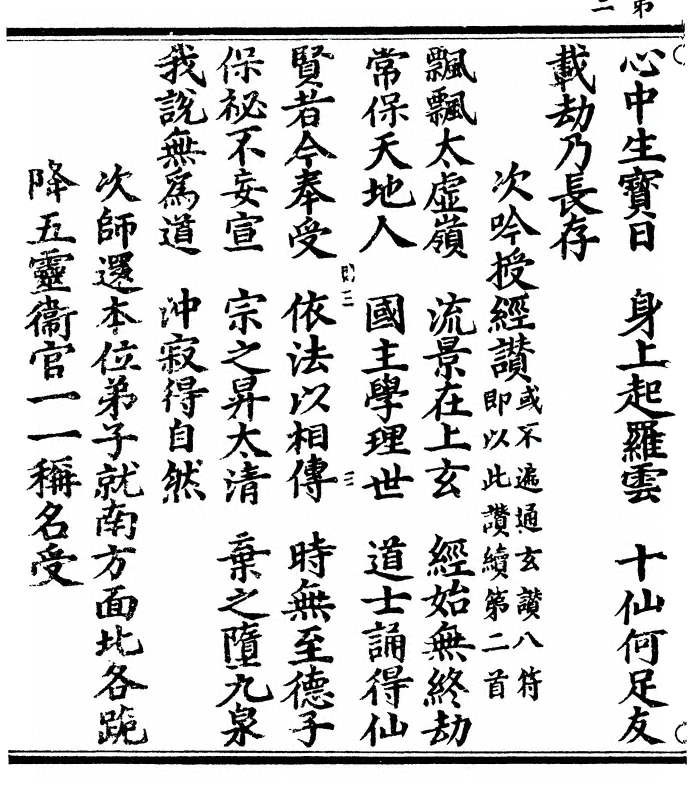 第二
心中生寶日　身上起羅雲　十仙何足友
載劫乃長存
次吟授經讃或不遍通玄讃八符
即以此讃續第二首
飄飄太虛嶺　流景在上玄　經始無終劫
常保天地人　國主學理世　道士誦得仙
賢者今奉受　依法以相傳　時無至德子
保祕不妄宣　宗之昇太清　棄之墮九泉
我說無爲道　沖寂得自然
次師還本位弟子就南方面北各跪
降五靈衞官一一稱名受